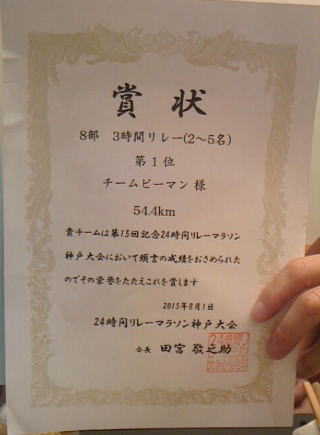 賞状
8部 3時間リレー(2〜5名)
第1位
チームピーマン 様
54.4km
貴チームは第15回記念24時間リレーマラソン
神戸大会において頭書の成績をおさめられた
のでその栄誉をたたえこれを賞します
2015年8月1日
24時間リレーマラソン神戸大会
会長 田宮 敬之助